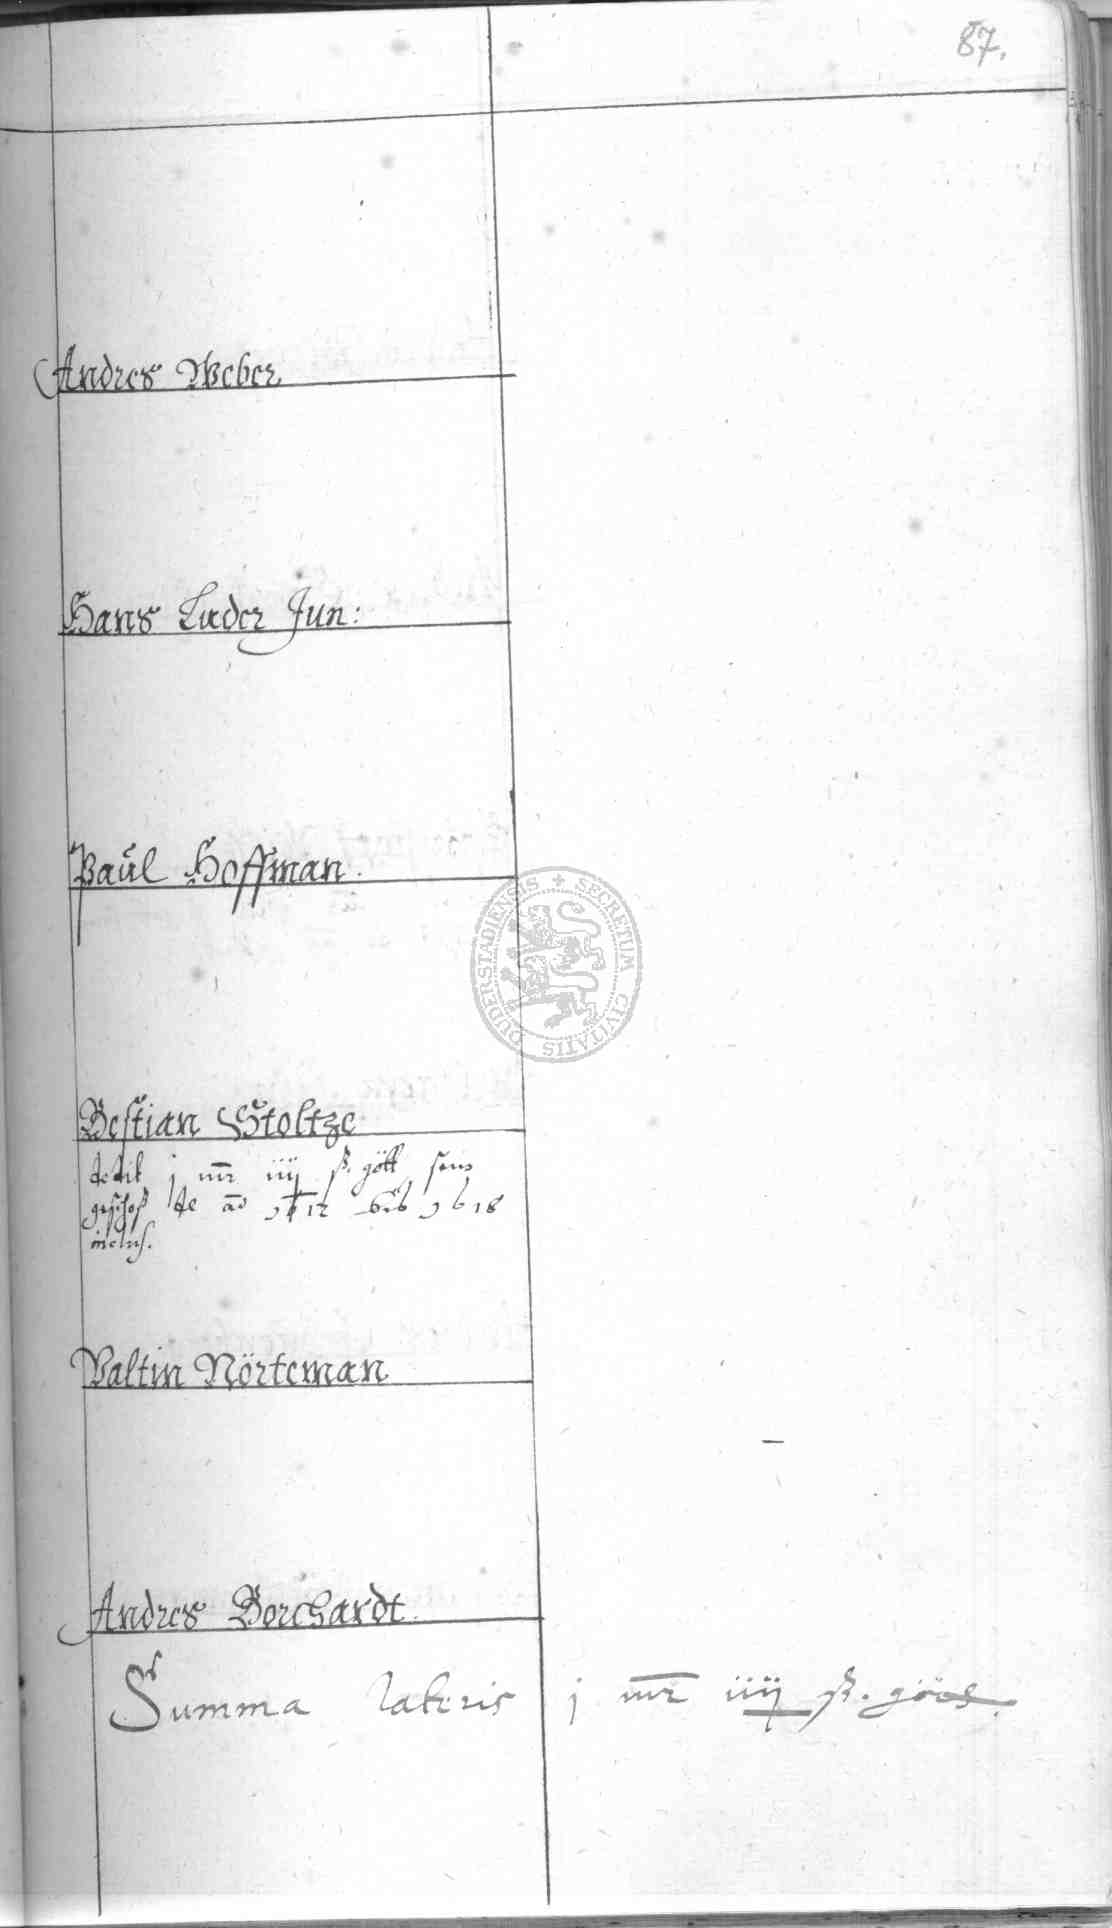 87.
Andres Weber
Hans Luder Jun:
Paul Hoffman.
SECRETUM CIVITATIS DUDERSTADIENSIS
Bestian Stoltze
dedit j mr iiij ß. gött sein
geschoß de ao 1612 bis 1618
inclus.
Valtin Nörteman
Andres Borchardt.
Summa lateris j mr iiij ß. göts.